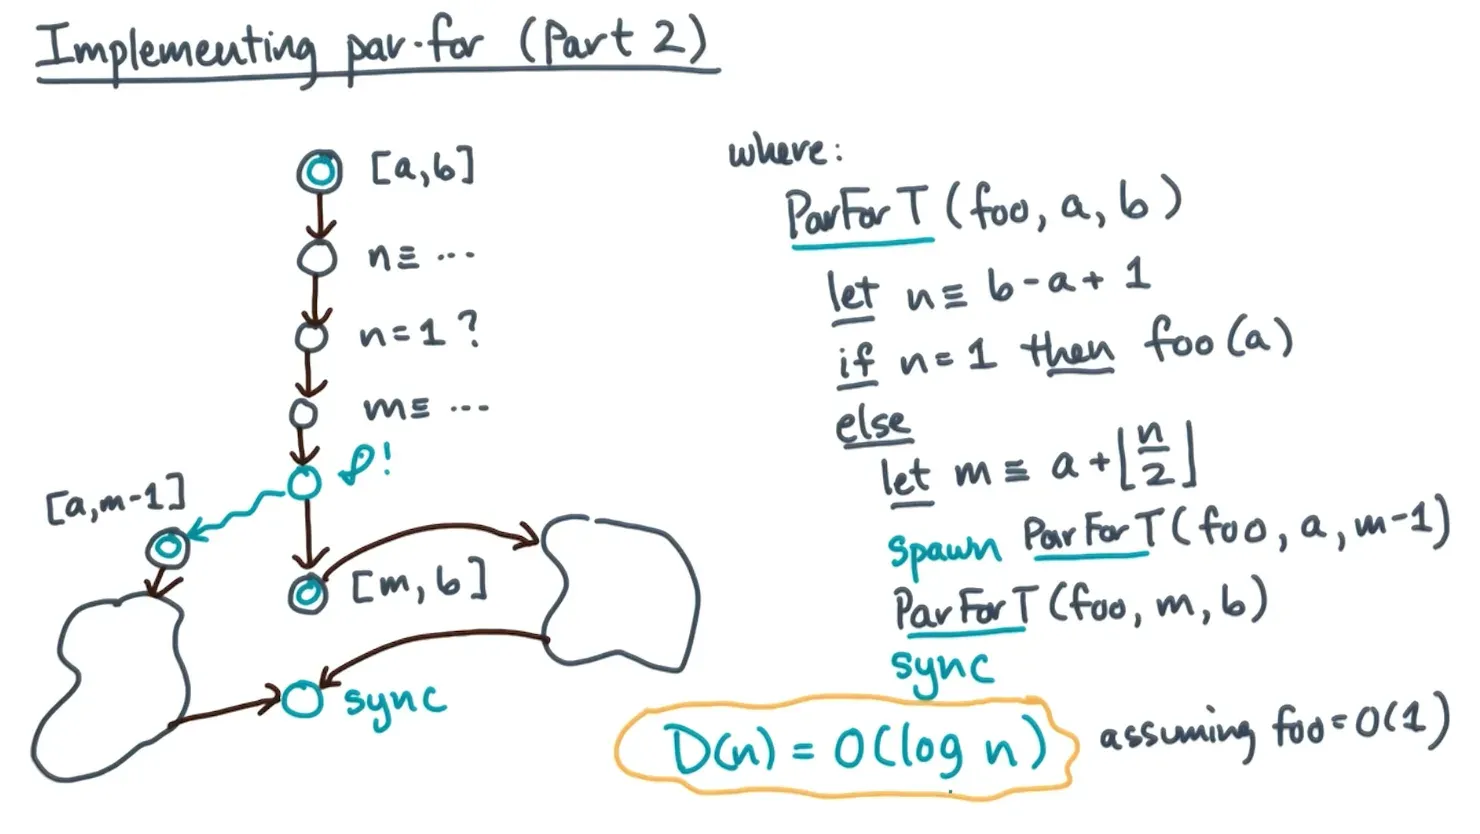 Implementing par-for (Part 2)
[a,b]
n≡ ...
n=1?
m≡ ...
[a,m-1]
[m,b]
sync
where:
ParForT(foo, a, b)
let n≡ b-a+1
if n=1 then foo(a)
else
let m ≡ a+⌊n/2⌋
spawn ParForT(foo, a, m-1)
ParForT(foo, m, b)
sync
D(n) = O(log n)
assuming foo=O(1)